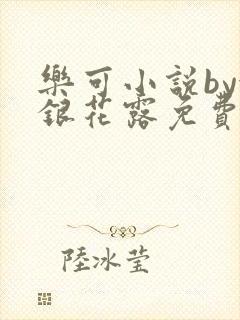 樂可小説by
銀花露免費
陸冰瑩